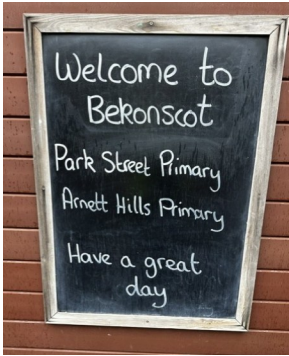 Welcome to
Bekonscot
Park Street Primary
Arnett Hills Primary
Have a great
day